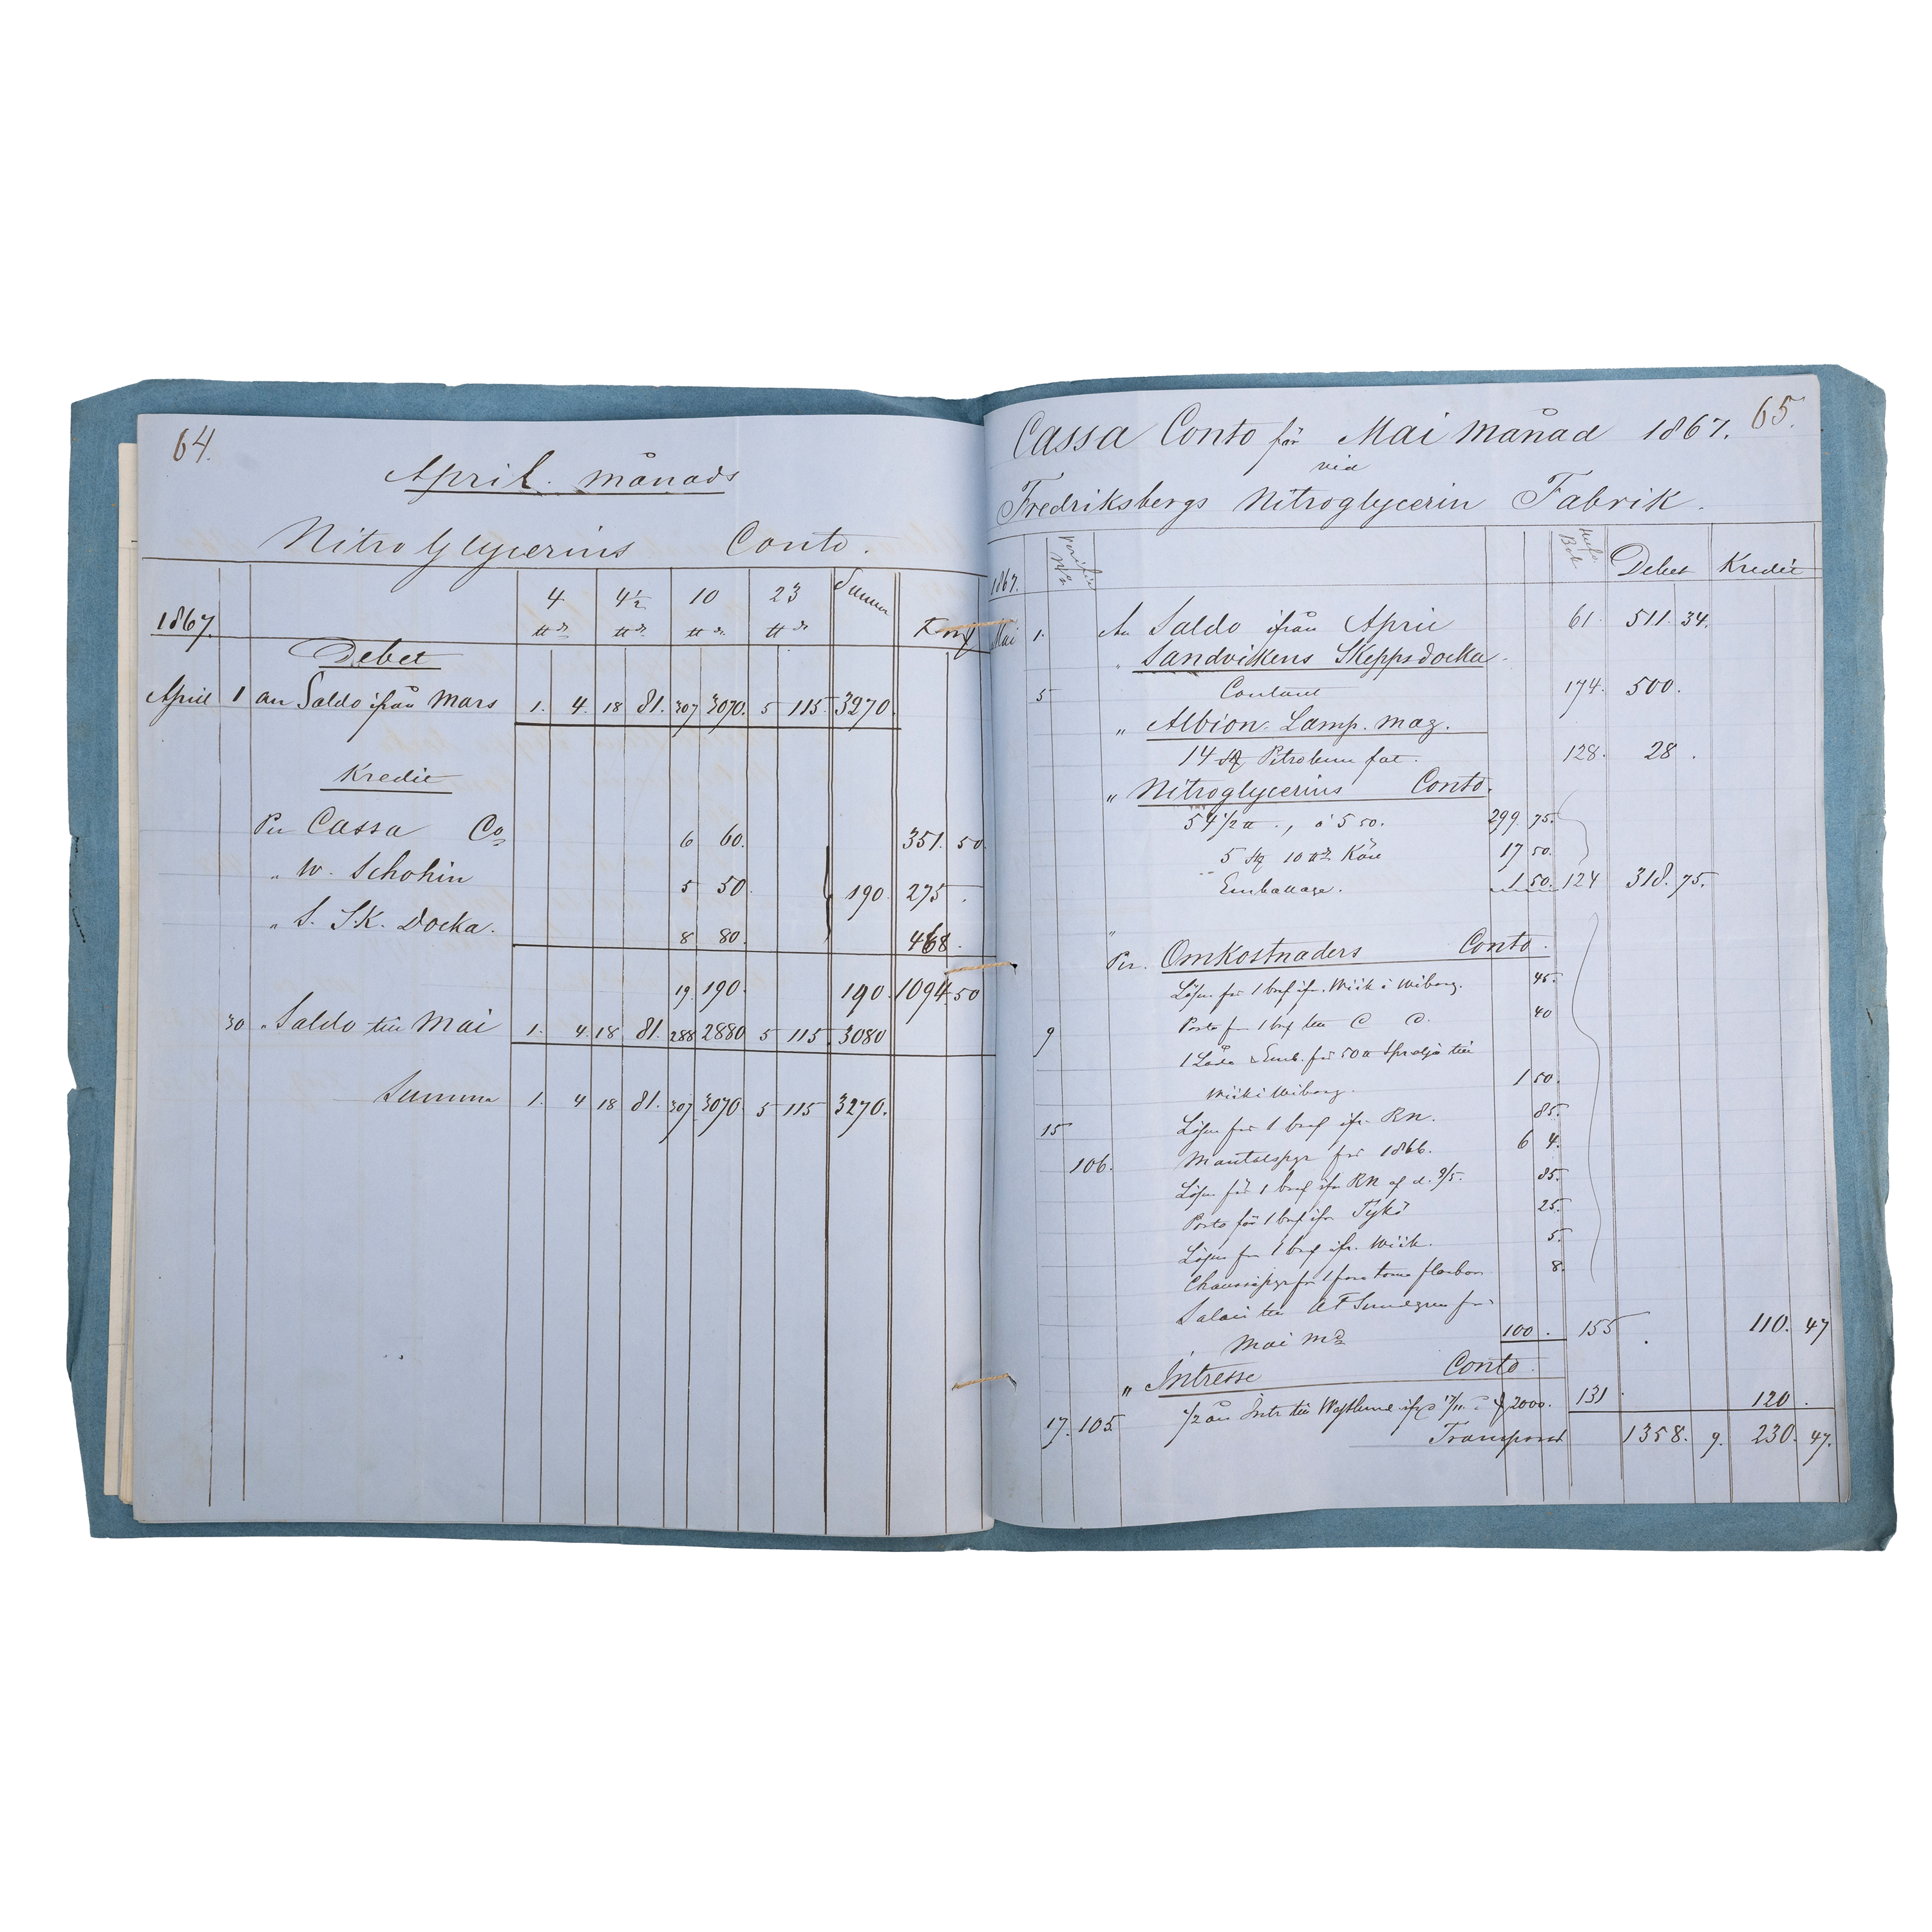 64.
April. månads
Nitroglycerins Conto.
1867. 4 4½ 10 23 Summa
℔ ℔ ℔ ℔
Debet
April 1 an Saldo ifrån Mars 1. 4. 18 81. 307 3070. 5 115 3270.
Kredit
Per Cassa Co 6 60. 351. 50.
„ W. Schohin 5 50. 190 275 .
„ S. SK. Docka. 8 80. 468.
19. 190. 190. 1094 50
30 „ Saldo till Mai 1. 4. 18 81. 288 2880 5 115. 3080
Summa 1. 4 18 81. 307. 3070. 5 115 3270.
65.
Cassa Conto för Mai månad 1867.
vid
Fredriksbergs Nitroglycerin Fabrik.
1867. Debet Kredit
Mai 1. An Saldo ifrån April 61. 511. 34.
„ Sandvikens Skeppsdocka.
5 Contant 174. 500.
„ Albion. Lamp. Mag.
14 st Petroleum fat. 128. 28 .
„ Nitroglycerins Conto.
54½ ℔ ., á 5 50. 299. 75.
5 st 10 ℔ Käril 17 50.
Emballage. 1 50. 124 318. 75.
„
Per. Omkostnaders Conto.
Lösen för 1 bref ifr. Wiik i Wiborg. 45.
9 Porto för 1 bref till D D. 40
1 Låda & Emb. för 50 ℔ till
Wiik i Wiborg. 1 50.
15 Lösen för 1 bref ifr. RN. 85.
106. Mantalspgr för 1866. 6 4.
Lösen för 1 bref ifr RN af d. 9/5. 85.
Porto för 1 bref ifr Tykö 25.
Lösen för 1 bref ifr. Wiik. 5.
Chaussépgr för 1 fora tomma flaskor 8.
Salair till AF Sundgren för
Mai Md 100. 155 110. 47
„ Intresse Conto.
17. 105. ½ års Intr till 2000. 131 120 .
Transport 1358. 9. 230. 47.